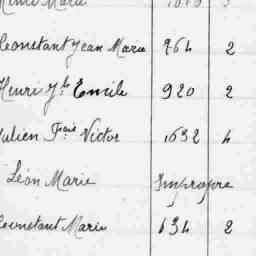 Marie
Constant Jean Marie 964 2
Henri Jh Emile 920 2
Julien Frois Victor 1632 4
Léon Marie Impropre
Constant Marie 634 2